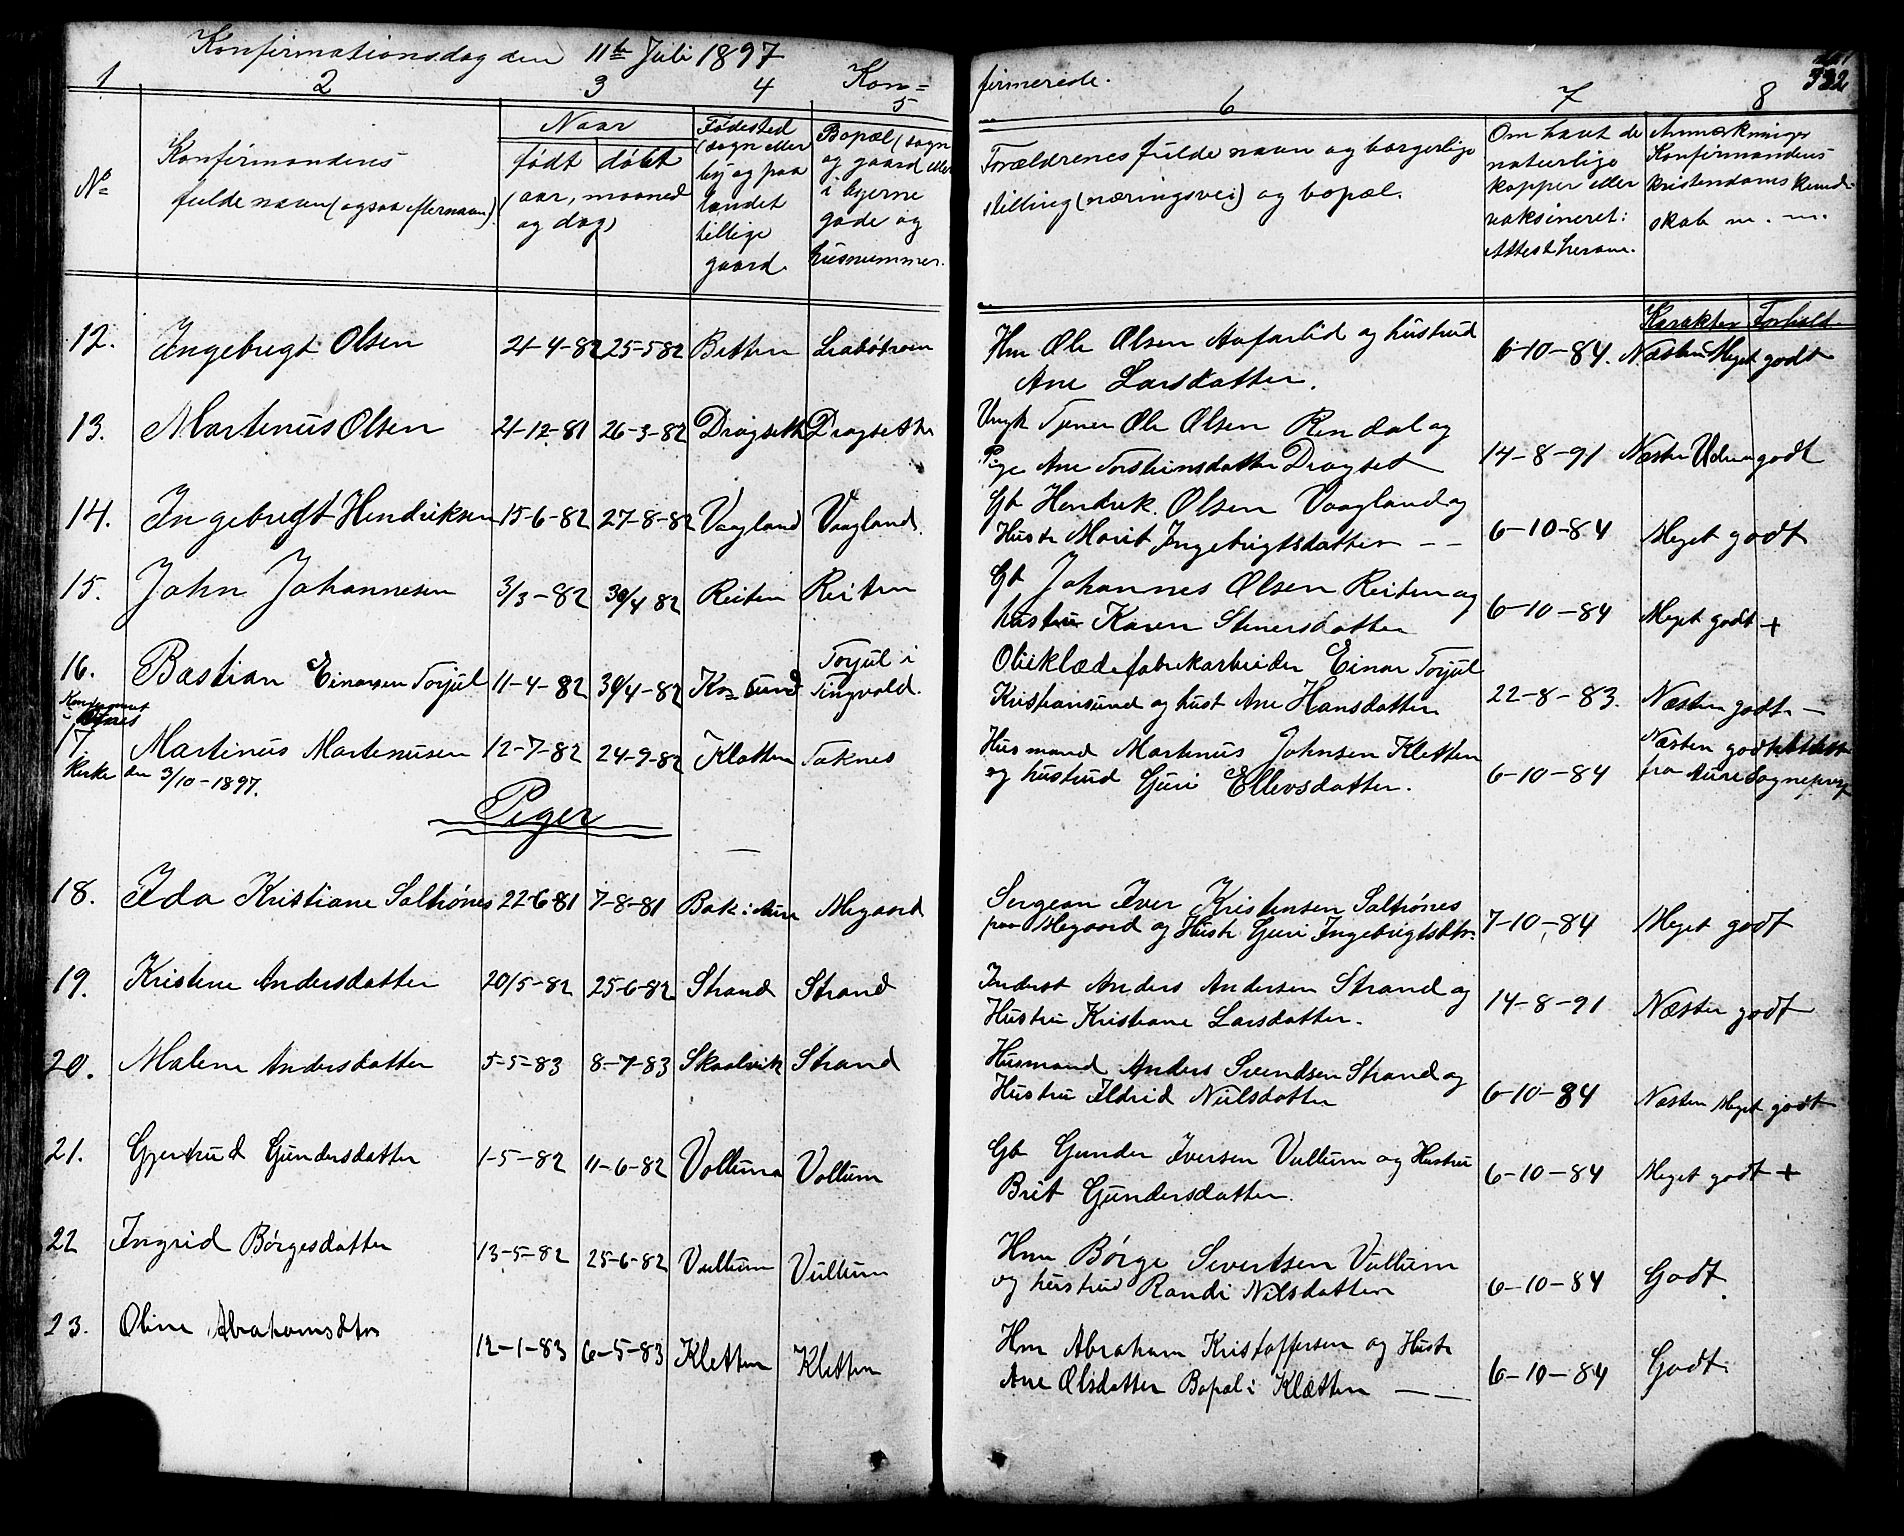 Konfirmationsdag den 11te Juli 1897
Kon=
firmerede.
332
1 2 3 4 5 6 7 8
No
Konfirmandens
fulde navn (ogsaa efternavn)
Naar
født døbt
(aar, maaned
og dag)
Fødested
(sogn eller
by og paa
landet
tillige
gaard.
Bopæl (sogn
og gaard eller
i byerne
gade og
husnummer.
Forældrenes fulde navn og borgerlige
stilling (næringsvei) og bopæl.
Om havt de
naturlige
kopper eller
vaksineret:
Attest herom.
Anmærkninger
Konfirmandens
kristendomskund-
skab m. m.
Karakter Forhold
12. Ingebrigt Olsen 21-4-82 25-5 82 Betten
Hm Ole Olsen og hustrud
Ane Larsdatter.
6-10-84. Næsten Meget godt
13. Martinus Olsen 21-12-81 26-3-82 Dragseth Dragsether
Ungk Tjener Ole Olsen Rendal og
Pige Ane Torstensdatter Dragset
14-8-91 Næsten godt
14. Ingebrigt Hendriksen 15-6-82 27-8-82 Vaagland Vaagland.
Gb Hendrik Olsen Vaagland og
Hustr Marit Ingebrigtsdatter — —
6-10-84 Meget godt
15. John Johannesen 3/3-82 30/4 82 Reiten Reiten
Gb Johannes Olsen Reiten og
hustru Karen Stenersdatter
6-10-84 Meget godt +
16. Bastian Einarsen Torjul 11-4-82 30/4-82 Kr= sund Torjul i
Tingvold.
Olieklædefabrikarbeider Einar Torjul
Kristiansund og hust Ane Hansdatter
22-8-83. Næsten godt —
17 Martinus Martinusen 12-7-82 24-9-82 Kletten Taknes
Kirke den 3/10-1897.
Husmand Martinus Johnsen Kletten
og hustrud Guri Ellevsdatter.
6-10-84 Næsten godt
fra Aure Sognepræst
Piger
18. Ida Kristiane Saltrønes 22-6-81 7-8-81 Bak i Aure Megaard
Sergean Iver Kristensen Saltrønes
paa Megaard og Hustr Guri Ingebrigtsdtr.
7-10-84 Meget godt
19. Kristine Andersdatter 20/5-82 25-6-82 Strand Strand
Inderst Anders Andersen Strand og
Hustru Kristiane Larsdatter.
14-8-91 Næsten godt
20. Malene Andersdatter 5-5-83 8-7-83 Skaalvik Strand
Husmand Anders Svendsen Strand og
Hustru Ildrid Nilsdatter
6-10-84 Næsten Meget godt
21. Gjertrud Gundersdatter 1-5-82 11-6-82 Vullum Vullum
Gb Gunder Iversen Vullum og Hustru
Brit Gundersdatter.
6-10-84 Meget godt +
22 Ingrid Børgesdatter 13-5-82 25-6-82 Vullum Vullum
Hm Børge Sivertsen Vullum
og hustrud Randi Nilsdatter
6-10-84 Godt
23. Oline Abrahamsdtr 12-1-83 6-5-83 Kletten Kletten
Hm Abraham Kristoffersen og Hustr
Ane Olsdatter Bopæl i Klætten — —
6-10-84 Godt